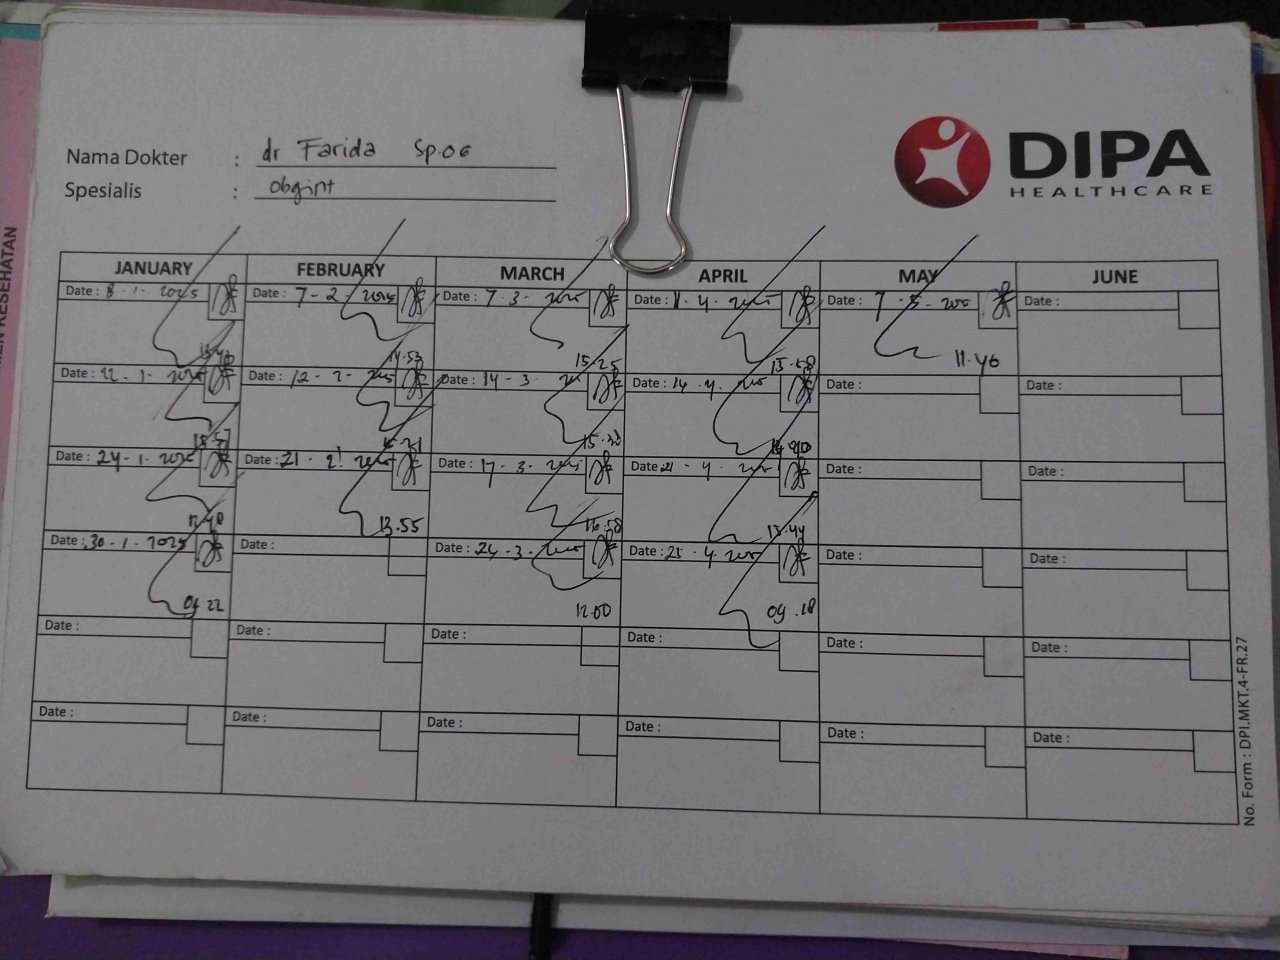 Nama Dokter : dr Farida Sp.OG
Spesialis : Obgint
DIPA
HEALTHCARE
JANUARY FEBRUARY MARCH APRIL MAY JUNE
Date : 8 - 1 - 2025 Date : 7 - 2 - 2025 Date : 7 - 3 - Date : 4 - Date : 7 - 5 - Date :
14.53 15.25 15.58 11.46
Date : 22 - 1 - 2025 Date : 12 - 2 - Date : 14 - 3 - Date : 14 - 4 - Date : Date :
Date : 24 - 1 - 2025 Date : 21 - 2 - Date : 17 - 3 - Date : 21 - 4 - Date : Date :
13.55 16.58 13.44
Date : 30 - 1 - 2025 Date : Date : 24 - 3 - Date : 25 - 4 - Date : Date :
09 22 12.00 09.18
Date : Date : Date : Date : Date : Date :
Date : Date : Date : Date : Date : Date :
No. Form : DPI.MKT.4-FR.27
KESEHATAN